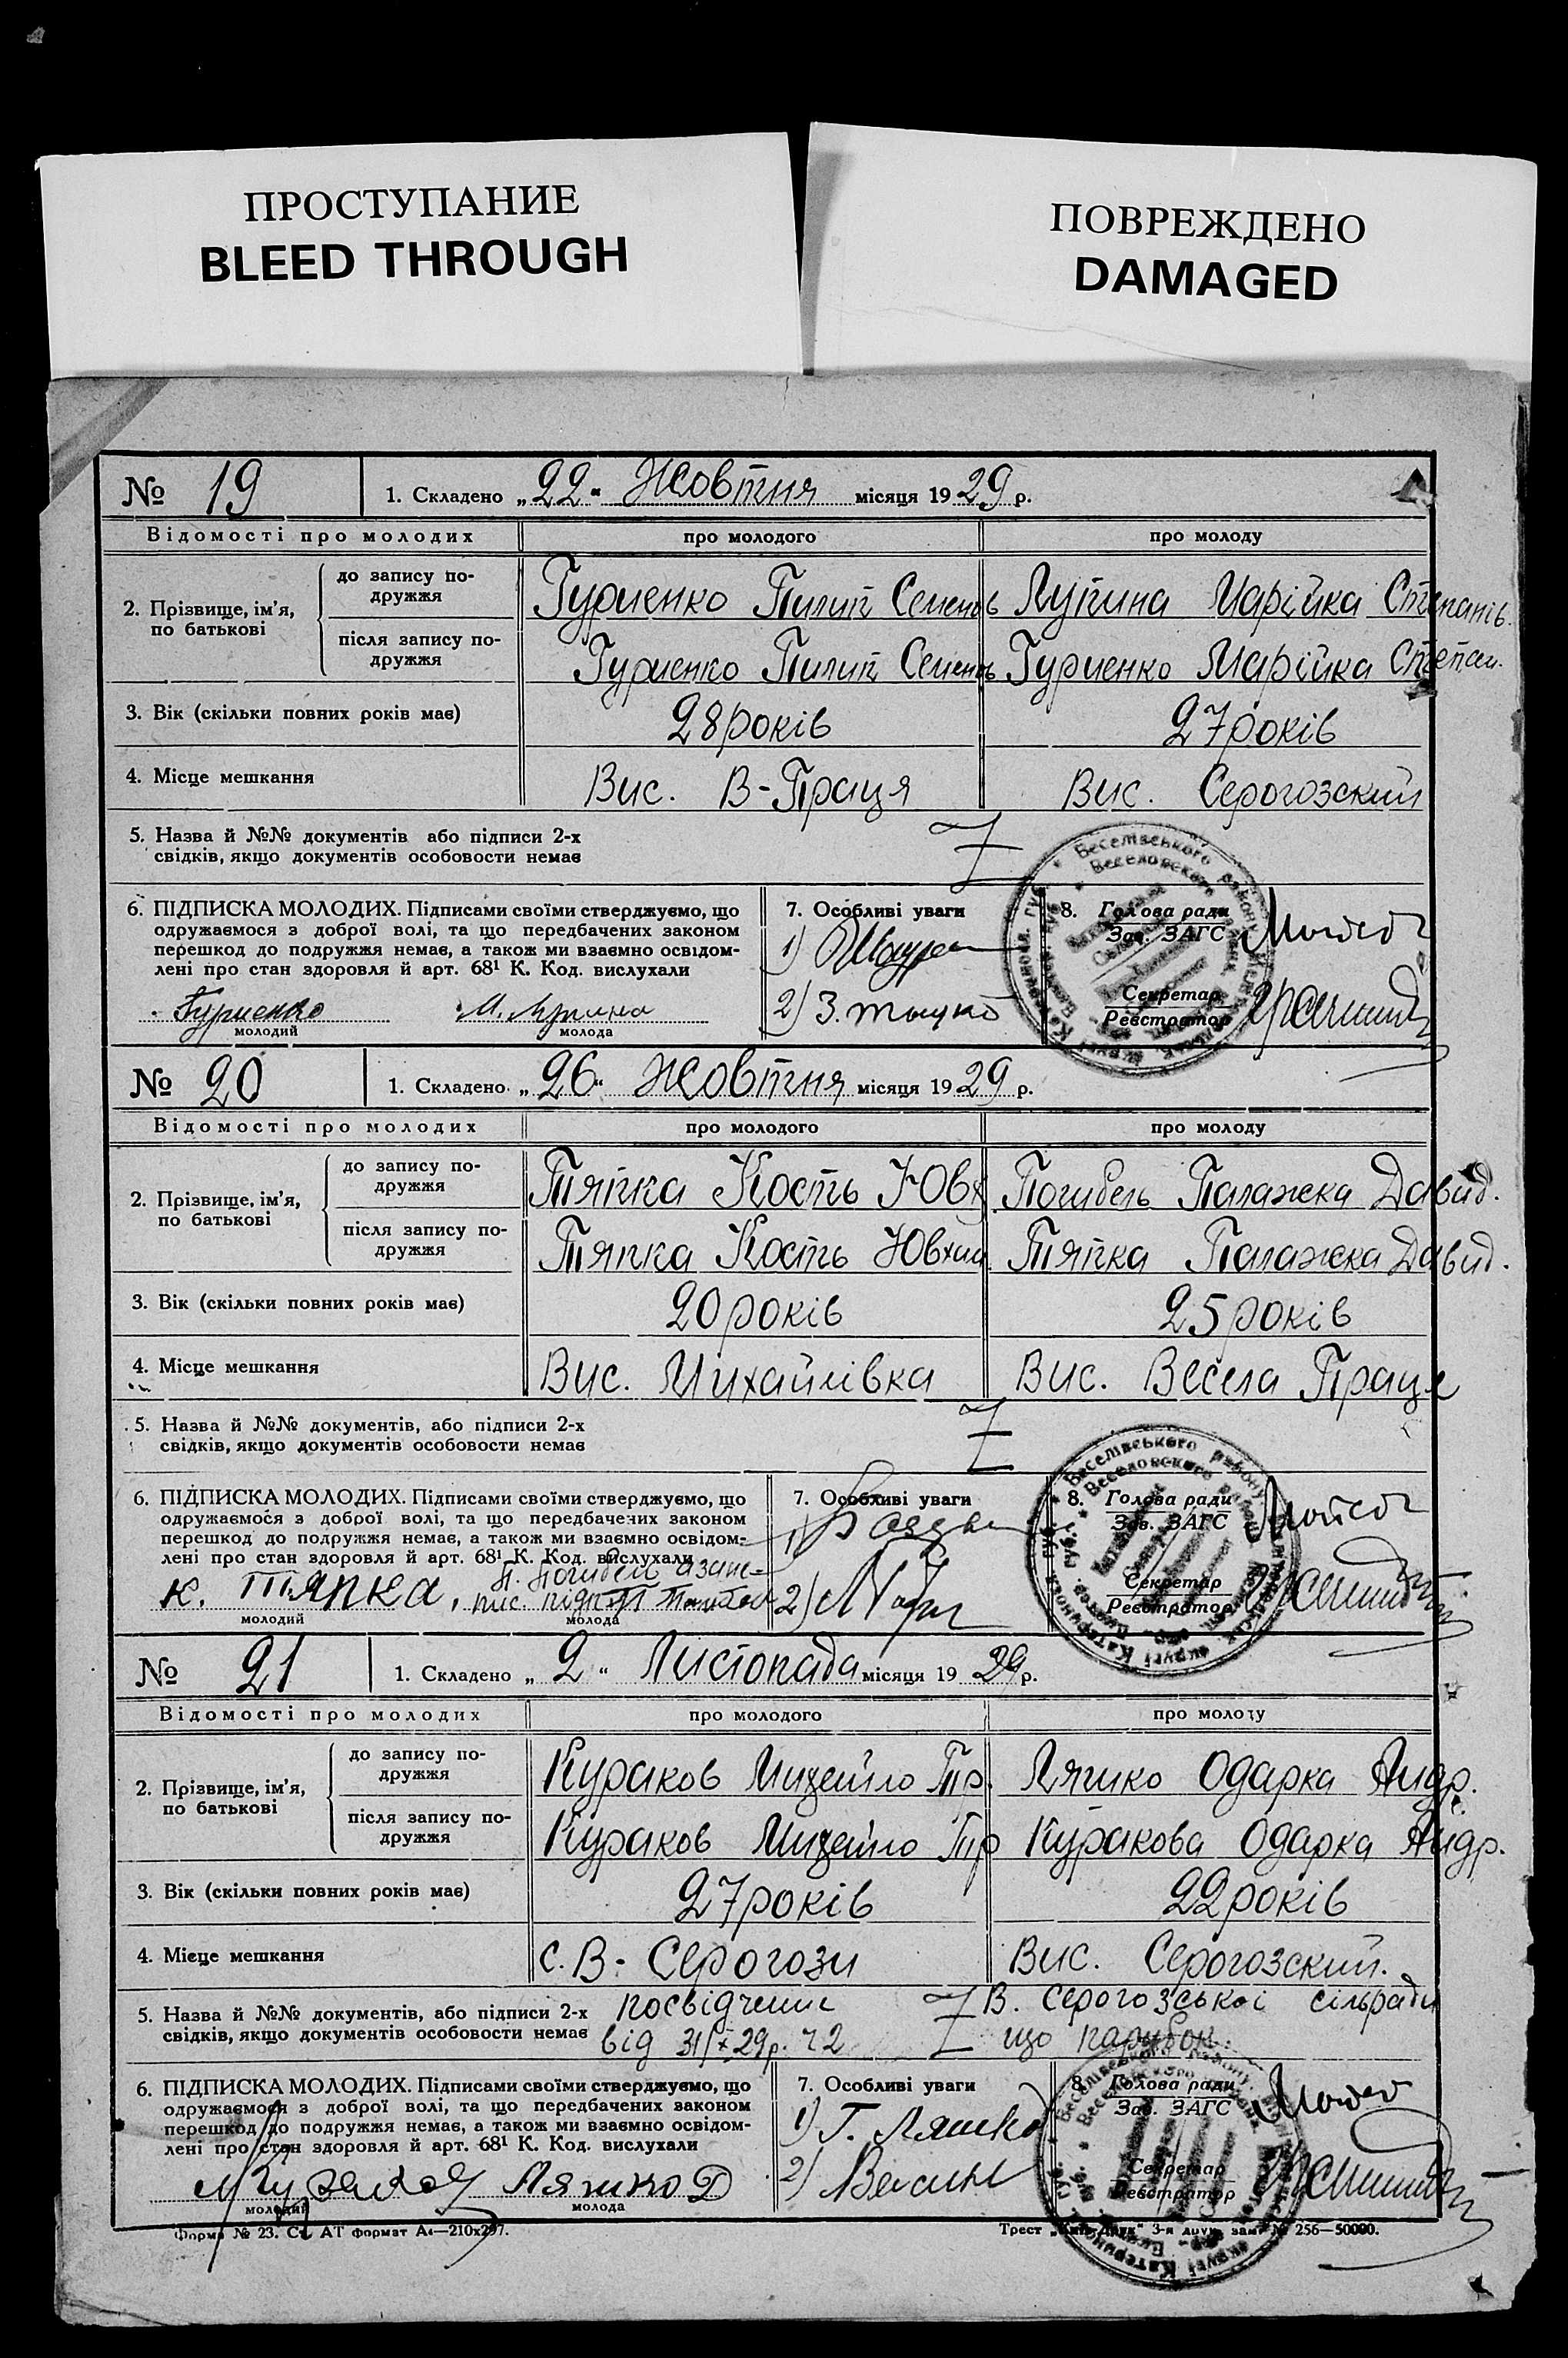 ПРОСТУПАНИЕ
BLEED THROUGH
ПОВРЕЖДЕНО
DAMAGED
№ 19 1. Складено „22“ Жовтня місяця 1929 р.
Відомості про молодих про молодого про молоду
2. Прізвище, ім'я, по батькові
до запису подружжя Гуриенко Пилип Семенов Лупина Марійка Степанів.
після запису подружжя Гуриенко Пилип Семенов Гуриенко Марійка Степан.
3. Вік (скільки повних років має) 28 років 27 років
4. Місце мешкання Вис. В-Праця Вис. Серогозский
5. Назва й №№ документів або підписи 2-х
свідків, якщо документів особовости немає
6. ПІДПИСКА МОЛОДИХ. Підписами своїми стверджуємо, що
одружаємося з доброї волі, та що передбачених законом
перешкод до подружжя немає, а також ми взаємно освідом-
лені про стан здоровля й арт. 68¹ К. Код. вислухали
Гуриенко М. Лупина
молодий молода
7. Особливі уваги
1)
2) З.
8. Голова ради
Зав. ЗАГС
Секретар
Реєстратор
№ 20 1. Складено „26“ Жовтня місяця 1929 р.
Відомості про молодих про молодого про молоду
2. Прізвище, ім'я, по батькові
до запису подружжя Тяпка Кость Ювх. Погибель Палажка Давид.
після запису подружжя Тяпка Кость Ювхим. Тяпка Палажка Давид.
3. Вік (скільки повних років має) 20 років 25 років
4. Місце мешкання Вис. Михайлівка Вис. Весела Праця
5. Назва й №№ документів, або підписи 2-х
свідків, якщо документів особовости немає
6. ПІДПИСКА МОЛОДИХ. Підписами своїми стверджуємо, що
одружаємося з доброї волі, та що передбачених законом
перешкод до подружжя немає, а також ми взаємно освідом-
лені про стан здоровля й арт. 68¹ К. Код. вислухали
к. Тяпка, П. Погибель
молодий молода
7. Особливі уваги
1)
2)
8. Голова ради
Зав. ЗАГС
Секретар
Реєстратор
№ 21 1. Складено „2“ Листопада місяця 1929 р.
Відомості про молодих про молодого про молоду
2. Прізвище, ім'я, по батькові
до запису подружжя Кураков Михайло Тр. Ляшко Одарка Андр.
після запису подружжя Кураков Михайло Тр Куракова Одарка Андр.
3. Вік (скільки повних років має) 27 років 22 років
4. Місце мешкання с. В-Серогози Вис. Серогозский.
5. Назва й №№ документів, або підписи 2-х посвідчення В. Серогозської сільради
свідків, якщо документів особовости немає від 31/X 29р. ч 2 що парубок.
6. ПІДПИСКА МОЛОДИХ. Підписами своїми стверджуємо, що
одружаємося з доброї волі, та що передбачених законом
перешкод до подружжя немає, а також ми взаємно освідом-
лені про стан здоровля й арт. 68¹ К. Код. вислухали
Ляшко О
молодий молода
7. Особливі уваги
1) Г. Ляшко
2)
8. Голова ради
Зав. ЗАГС
Секретар
Реєстратор
Форма № 23. Ст. АТ формат А4—210х297.
Трест „Київ-Друк“ 3-я друк. зам. № 256—50000.